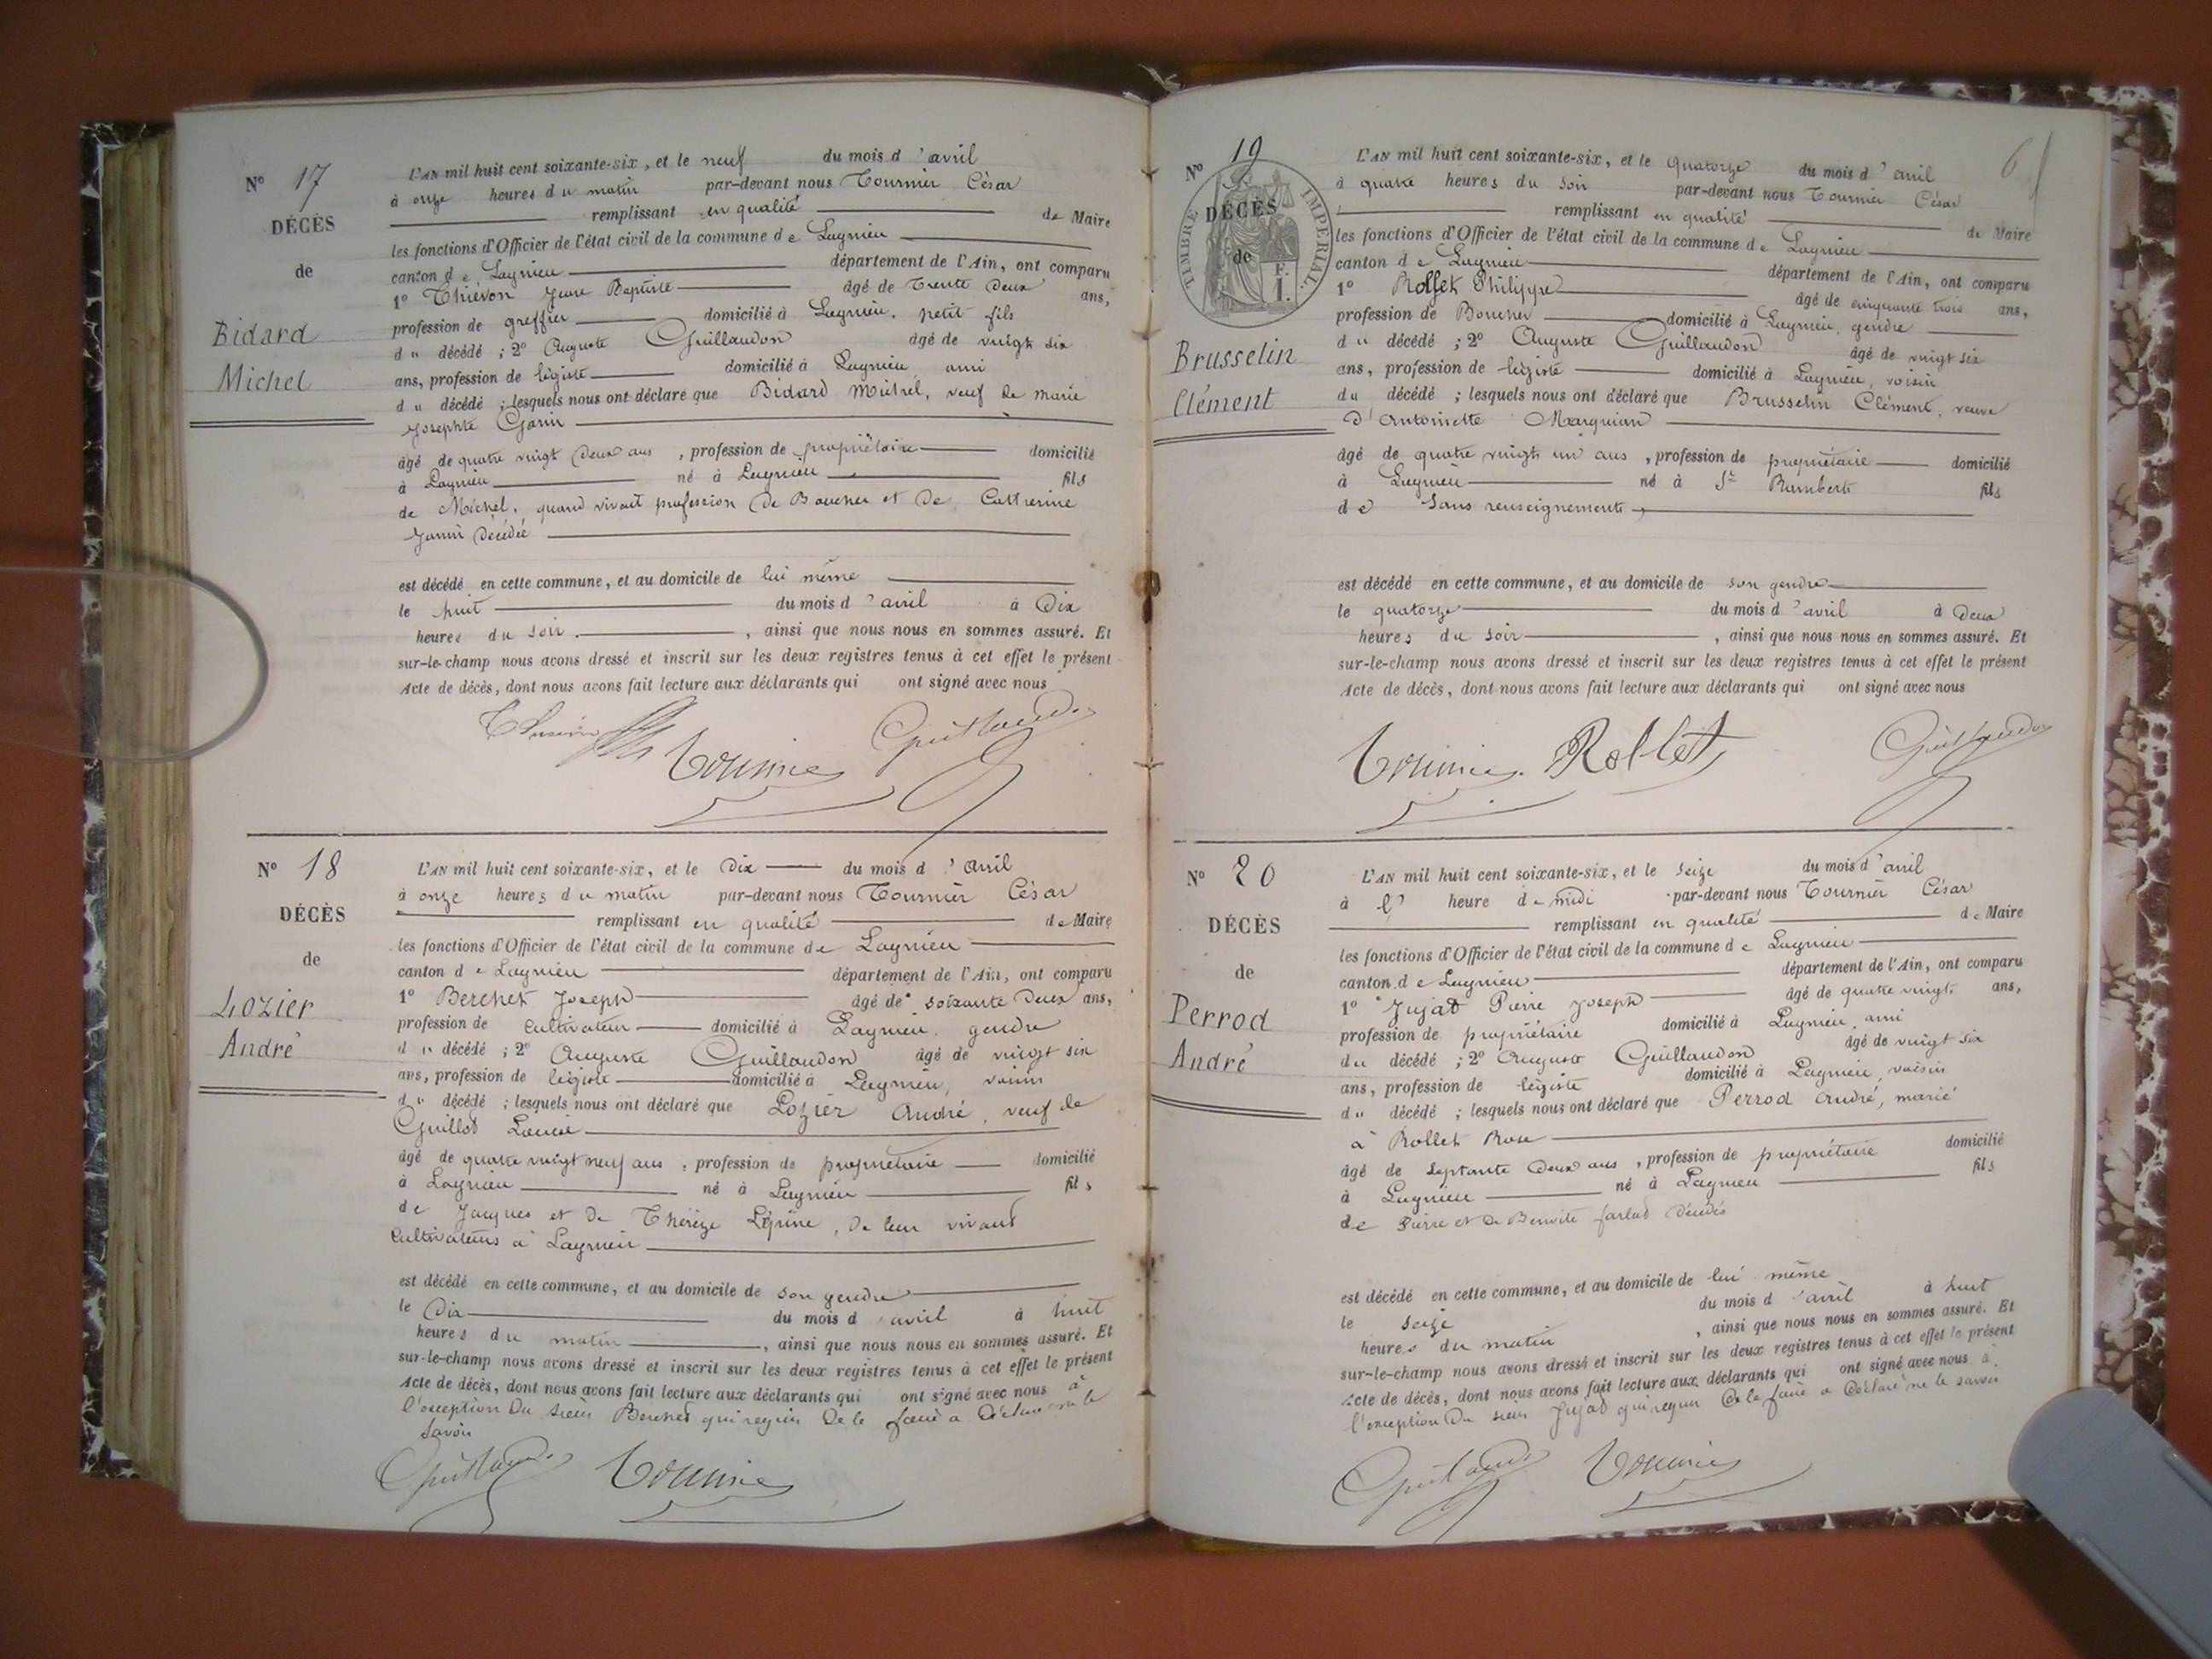 N° 17
DÉCÈS
de
Bidard
Michel
L'AN mil huit cent soixante-six, et le neuf du mois d'avril
à onze heures du matin par-devant nous Tournier César
remplissant en qualité de Maire
les fonctions d'Officier de l'état civil de la commune de Lagnieu
canton de Lagnieu département de l'Ain, ont comparu
1° Thiévon Jean Baptiste âgé de trente deux ans,
profession de greffier domicilié à Lagnieu, petit fils
du décédé ; 2° Auguste Guillaudon âgé de vingt six
ans, profession de légiste domicilié à Lagnieu, ami
du décédé ; lesquels nous ont déclaré que Bidard Michel, veuf de marie
Josephte Garin
âgé de quatre vingt deux ans, profession de propriétaire domicilié
à Lagnieu né à Lagnieu fils
de Michel, quand vivait profession de Boucher et de Catherine
Janin décédée
est décédé en cette commune, et au domicile de lui même
le huit du mois d'avril à dix
heures du soir, ainsi que nous nous en sommes assuré. Et
sur-le-champ nous avons dressé et inscrit sur les deux registres tenus à cet effet le présent
Acte de décès, dont nous avons fait lecture aux déclarants qui ont signé avec nous
Tournier Guillaudon
N° 18
DÉCÈS
de
Lozier
André
L'AN mil huit cent soixante-six, et le dix du mois d'avril
à onze heures du matin par-devant nous Tournier César
remplissant en qualité de Maire
les fonctions d'Officier de l'état civil de la commune de Lagnieu
canton de Lagnieu département de l'Ain, ont comparu
1° Berchet Joseph âgé de soixante deux ans,
profession de cultivateur domicilié à Lagnieu, gendre
du décédé ; 2° Auguste Guillaudon âgé de vingt six
ans, profession de légiste domicilié à Lagnieu, voisin
du décédé ; lesquels nous ont déclaré que Lozier André, veuf de
Guillot Louise
âgé de quatre vingt neuf ans, profession de propriétaire domicilié
à Lagnieu né à Lagnieu fils
de Jacques et de Thérèze Lépine, de leur vivant
cultivateurs à Lagnieu
est décédé en cette commune, et au domicile de son gendre
le dix du mois d'avril à huit
heures du matin, ainsi que nous nous en sommes assuré. Et
sur-le-champ nous avons dressé et inscrit sur les deux registres tenus à cet effet le présent
Acte de décès, dont nous avons fait lecture aux déclarants qui ont signé avec nous à
l'exception du sieur Berchet qui requis de le faire a déclaré ne le
savoir
Guillaudon Tournier
N° 19
TIMBRE IMPERIAL
E. I.
DÉCÈS
de
Brusselin
Clément
L'AN mil huit cent soixante-six, et le quatorze du mois d'avril
à quatre heures du soir par-devant nous Tournier César
remplissant en qualité de Maire
les fonctions d'Officier de l'état civil de la commune de Lagnieu
canton de Lagnieu département de l'Ain, ont comparu
1° Rollet Philippe âgé de cinquante trois ans,
profession de Boucher domicilié à Lagnieu, gendre
du décédé ; 2° Auguste Guillaudon âgé de vingt six
ans, profession de légiste domicilié à Lagnieu, voisin
du décédé ; lesquels nous ont déclaré que Brusselin Clément, veuve
d'Antoinette Marguian
âgé de quatre vingt un ans, profession de propriétaire domicilié
à Lagnieu né à St Rambert fils
de Sans renseignements
est décédé en cette commune, et au domicile de son gendre
le quatorze du mois d'avril à deux
heures du soir, ainsi que nous nous en sommes assuré. Et
sur-le-champ nous avons dressé et inscrit sur les deux registres tenus à cet effet le présent
Acte de décès, dont nous avons fait lecture aux déclarants qui ont signé avec nous
Tournier Rollet Guillaudon
N° 20
DÉCÈS
de
Perrod
André
L'AN mil huit cent soixante-six, et le seize du mois d'avril
à l' heure de midi par-devant nous Tournier César
remplissant en qualité de Maire
les fonctions d'Officier de l'état civil de la commune de Lagnieu
canton de Lagnieu département de l'Ain, ont comparu
1° Jujat Pierre Joseph âgé de quatre vingt ans,
profession de propriétaire domicilié à Lagnieu, ami
du décédé ; 2° Auguste Guillaudon âgé de vingt six
ans, profession de légiste domicilié à Lagnieu, voisin
du décédé ; lesquels nous ont déclaré que Perrod André, marié
à Rollet Rose
âgé de septante deux ans, profession de propriétaire domicilié
à Lagnieu né à Lagnieu fils
de Pierre et de Benoite farlad décédés
est décédé en cette commune, et au domicile de lui même
le seize du mois d'avril à huit
heures du matin, ainsi que nous nous en sommes assuré. Et
sur-le-champ nous avons dressé et inscrit sur les deux registres tenus à cet effet le présent
Acte de décès, dont nous avons fait lecture aux déclarants qui ont signé avec nous à
l'exception du sieur Jujat qui requis de le faire a déclaré ne le savoir
Guillaudon Tournier